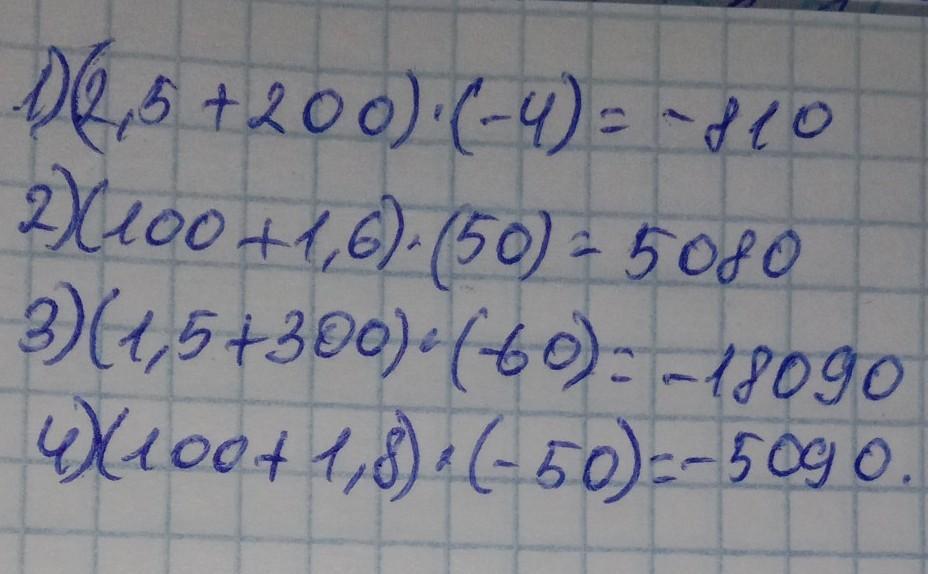 1)(2,5+200)·(-4)=-810
2)(100+1,6)·(50)=5080
3)(1,5+300)·(-60)=-18090
4)(100+1,8)·(-50)=-5090.